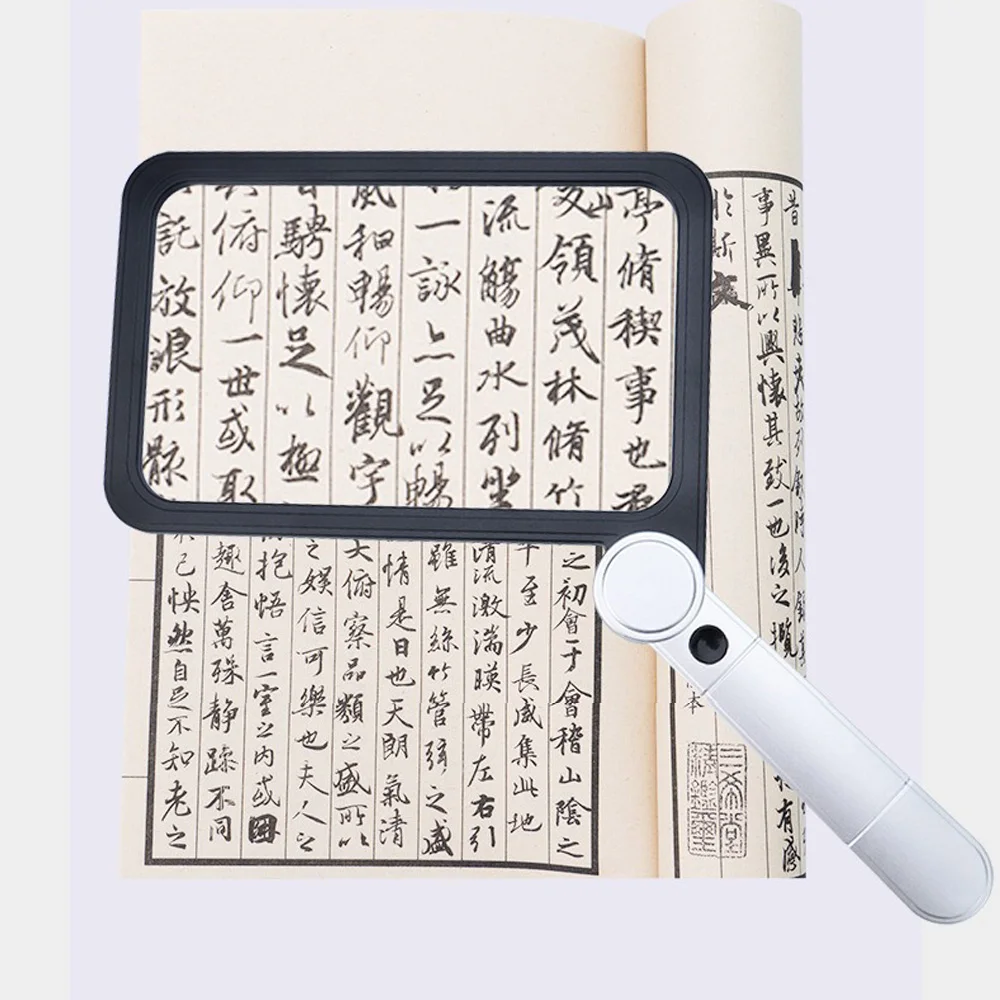 昔悲夫故列敘時人錄其
事異所以興懷其致一也後之攬
有感
於斯文
本
三希堂
精鑑璽
亭脩稧事也羣
峻領茂林脩竹
流觴曲水列坐
一詠亦足以暢
風和暢仰觀宇
騁懷足以極
俯仰一世或取
託放浪形骸
之初會于會稽山陰之
至少長咸集此地
清流激湍暎帶左右引
雖無絲竹管弦之盛
情是日也天朗氣清
大俯察品類之盛所以
之娛信可樂也夫人之
抱悟言一室之內或因
趣舍萬殊靜躁不同
己怏然自足不知老之